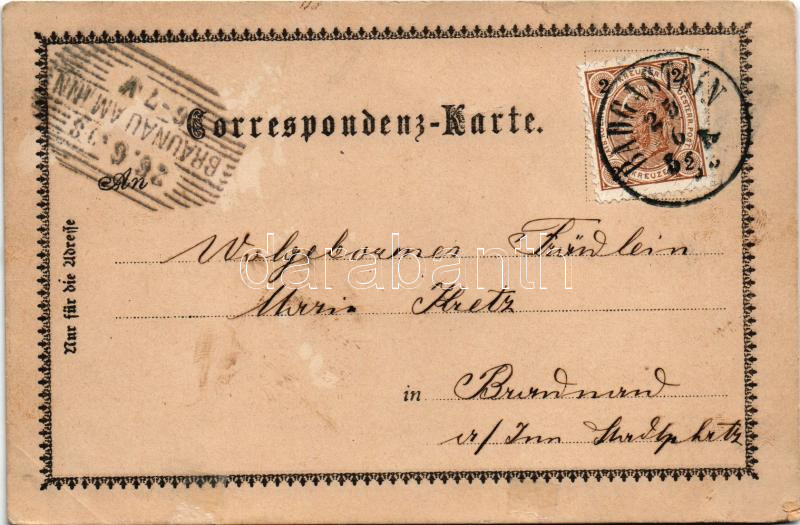 Correspondenz-Karte.
2 KREUZER 2
BADGASTEIN
25
6
BRAUNAU AM INN
26.6.98
6-7.V
An
Wolgebornes Fräulein
Marie Kretz
in Braunau
a/ Inn Stadtplatz
Nur für die Adresse
darabanth